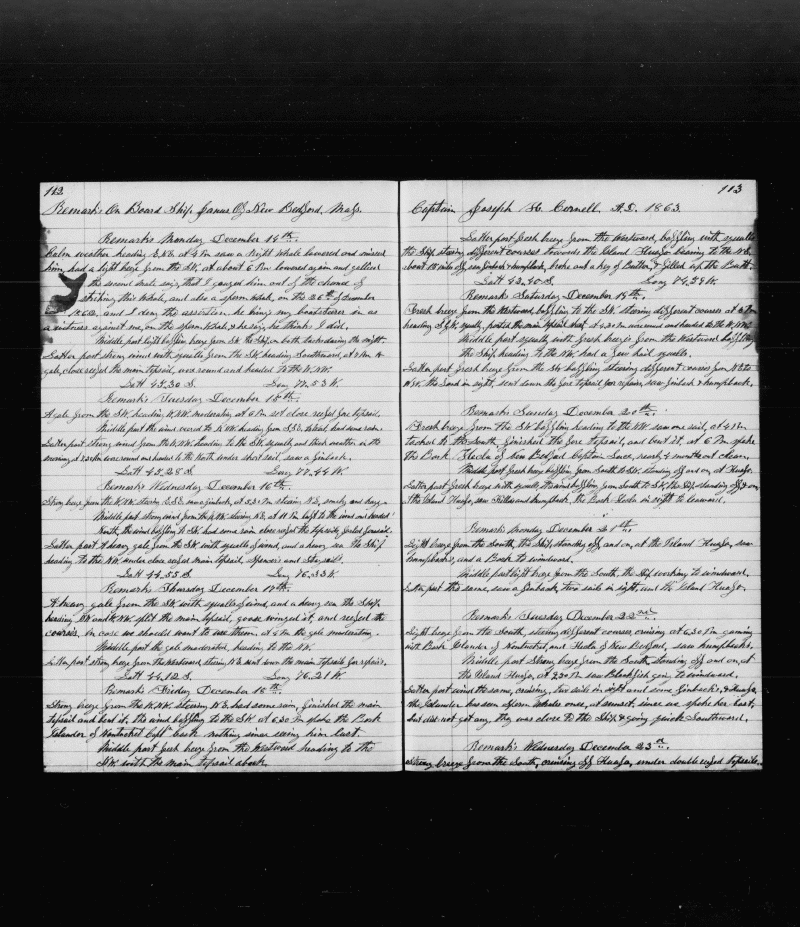 112
Remarks On Board Ship Janus Of New Bedford, Mass.
Remarks Monday December 14th
Calm weather heading E.N.E. at 4 Pm saw a Right Whale lowered and missed
him, had a light breeze from the S.W. at about 6 Pm lowered again and gallied
the second mate says, that I gauged him out of the chance of
striking, this Whale, and also a sperm whale, on the 26th of December
1862, and I deny the assertion. he bring my boatsteerer in as
a witness against me, on the sperm Whale, & he says, he thinks I did.
Middle part light baffling breeze from SW. the Ship, on both tacks during the night.
Latter part strong wind with squalls from the S.W. heading Southward, at
gale, close reefed the main topsail, wore round and headed to the N.W.
Latt 45.30 S. Long 77.53 W.
Remarks Tuesday December 15th
A gale from the S.W. heading N.W. moderating, at 6 Pm set close reefed fore topsail.
Middle part the wind veered to N.W. heading from S.S.E. to West, had some rain.
Latter part strong wind from the N.N.W. heading to the S.W. squally, and thick weather in the
morning at 7.30 Am wore round to the North under short sail, saw a finback.
Latt 45.28 S. Long 77.44 W.
Remarks Wednesday December 16th
Strong breeze from the N.N.W. steering E.S.E. saw a finback, at 5.30 Pm steering N.E. smoky and hazy.
Middle part strong wind from the N.N.W. steering N.E. at 11 Pm luft to the wind and headed
North, the wind baffling to S.W. had some rain close reefed the topsails, furled foresail.
Latter part A heavy gale from the S.W. with squalls of wind, and a heavy sea. the Ship
heading to the N.W. under close reefed main topsail, Spencer and Staysail.
Latt 44.55 S. Long 76.33 W.
Remarks Thursday December 17th
A heavy gale from the S.W. with squalls of wind, and a heavy sea the Ship
heading N.W and N.N.W. split the main topsail, goose winged it, and reefed the
courses, in case we should want to use them. at 9 Pm the gale moderating.
Middle part the gale moderated, heading to the N.W.
Latter part strong breeze from the Westward, steering N.E. sent down the main topsail for repairs.
Latt 44.12 S. Long 76.21 W.
Remarks Friday December 18th
Strong breeze from the N.N.W. steering N.E. had some rain, finished the main
topsail and bent it, the wind baffling to the S.W. at 6.30 Pm spoke the Bark
Islander of Nantucket nothing since seeing him last
Middle part fresh breeze from the Westward heading to the
S.W. with the main topsail aback.
113
Captain Joseph H. Cornell A.D. 1863.
Latter part fresh breeze from the Westward, baffling with squalls
the Ship steering different courses towards the Island Huafo bearing to the N.E.
about 18 miles off, saw finback & humpback, broke out a keg of Butter, & filled up the Butt.
Latt 43.40 S. Long 74.59 W.
Remarks Saturday December 19th
Fresh breeze from the Westward baffling to the SW. steering different courses at 3 Pm
heading S by W. squally, parted the main topsail at 4.30 Pm wore round and headed to the N.W.
Middle part squally with fresh breezes from the Westward baffling
the Ship heading to the N.W. had a few hail squalls.
Latter part fresh breeze from the SW baffling steering different courses from N.E to
W.S.W. the land in sight, sent down the fore topsail for repairs, saw finback & humpback.
Remarks Sunday December 20th
Fresh breeze from the S.W. baffling heading to the N.W. saw one sail, at 4 Pm
tacked to the South, finished the fore topsail, and bent It, at 6 Pm spoke
the Bark Hecla of New Bedford Captain Luce, reach 4 months out clean.
Middle part fresh breeze baffling from South to S.W. standing off and on, at Huafo.
Latter part fresh breeze with squalls & rain baffling from South to S.W. the Ship standing off & on
at the Island Huafo, saw Killers and humpback, the Bark Hecla in sight to leeward.
Remarks Monday December 21th
Light breeze from the South, the Ship standing off and on, at the Island Huafo, saw
humpbacks, and a Bark to windward.
Middle part light breeze from the South, the Ship working to windward.
Latter part the same, saw a finback, two sails in sight, and the Island Huafo.
Remarks Tuesday December 22nd
Light breeze from the South, steering different courses cruising at 6.30 Pm gaming
with Bark Islander of Nantucket, and Hecla of New Bedford, saw humpbacks.
Middle part Strong breeze from the South, standing off and on, at
the Island Huafo, at 9.30 Pm saw Blackfish going to windward.
Latter part wind the same, cruising, two sails in sight and some finbacks, & Huafo.
the Islander has seen sperm whales once, at sunset, since we spoke her last,
but did not get any, they was close to the Ship, & going quick Southward.
Remarks Wednesday December 23rd
Strong breeze from the South, cruising off Huafo, under double reefed topsails.